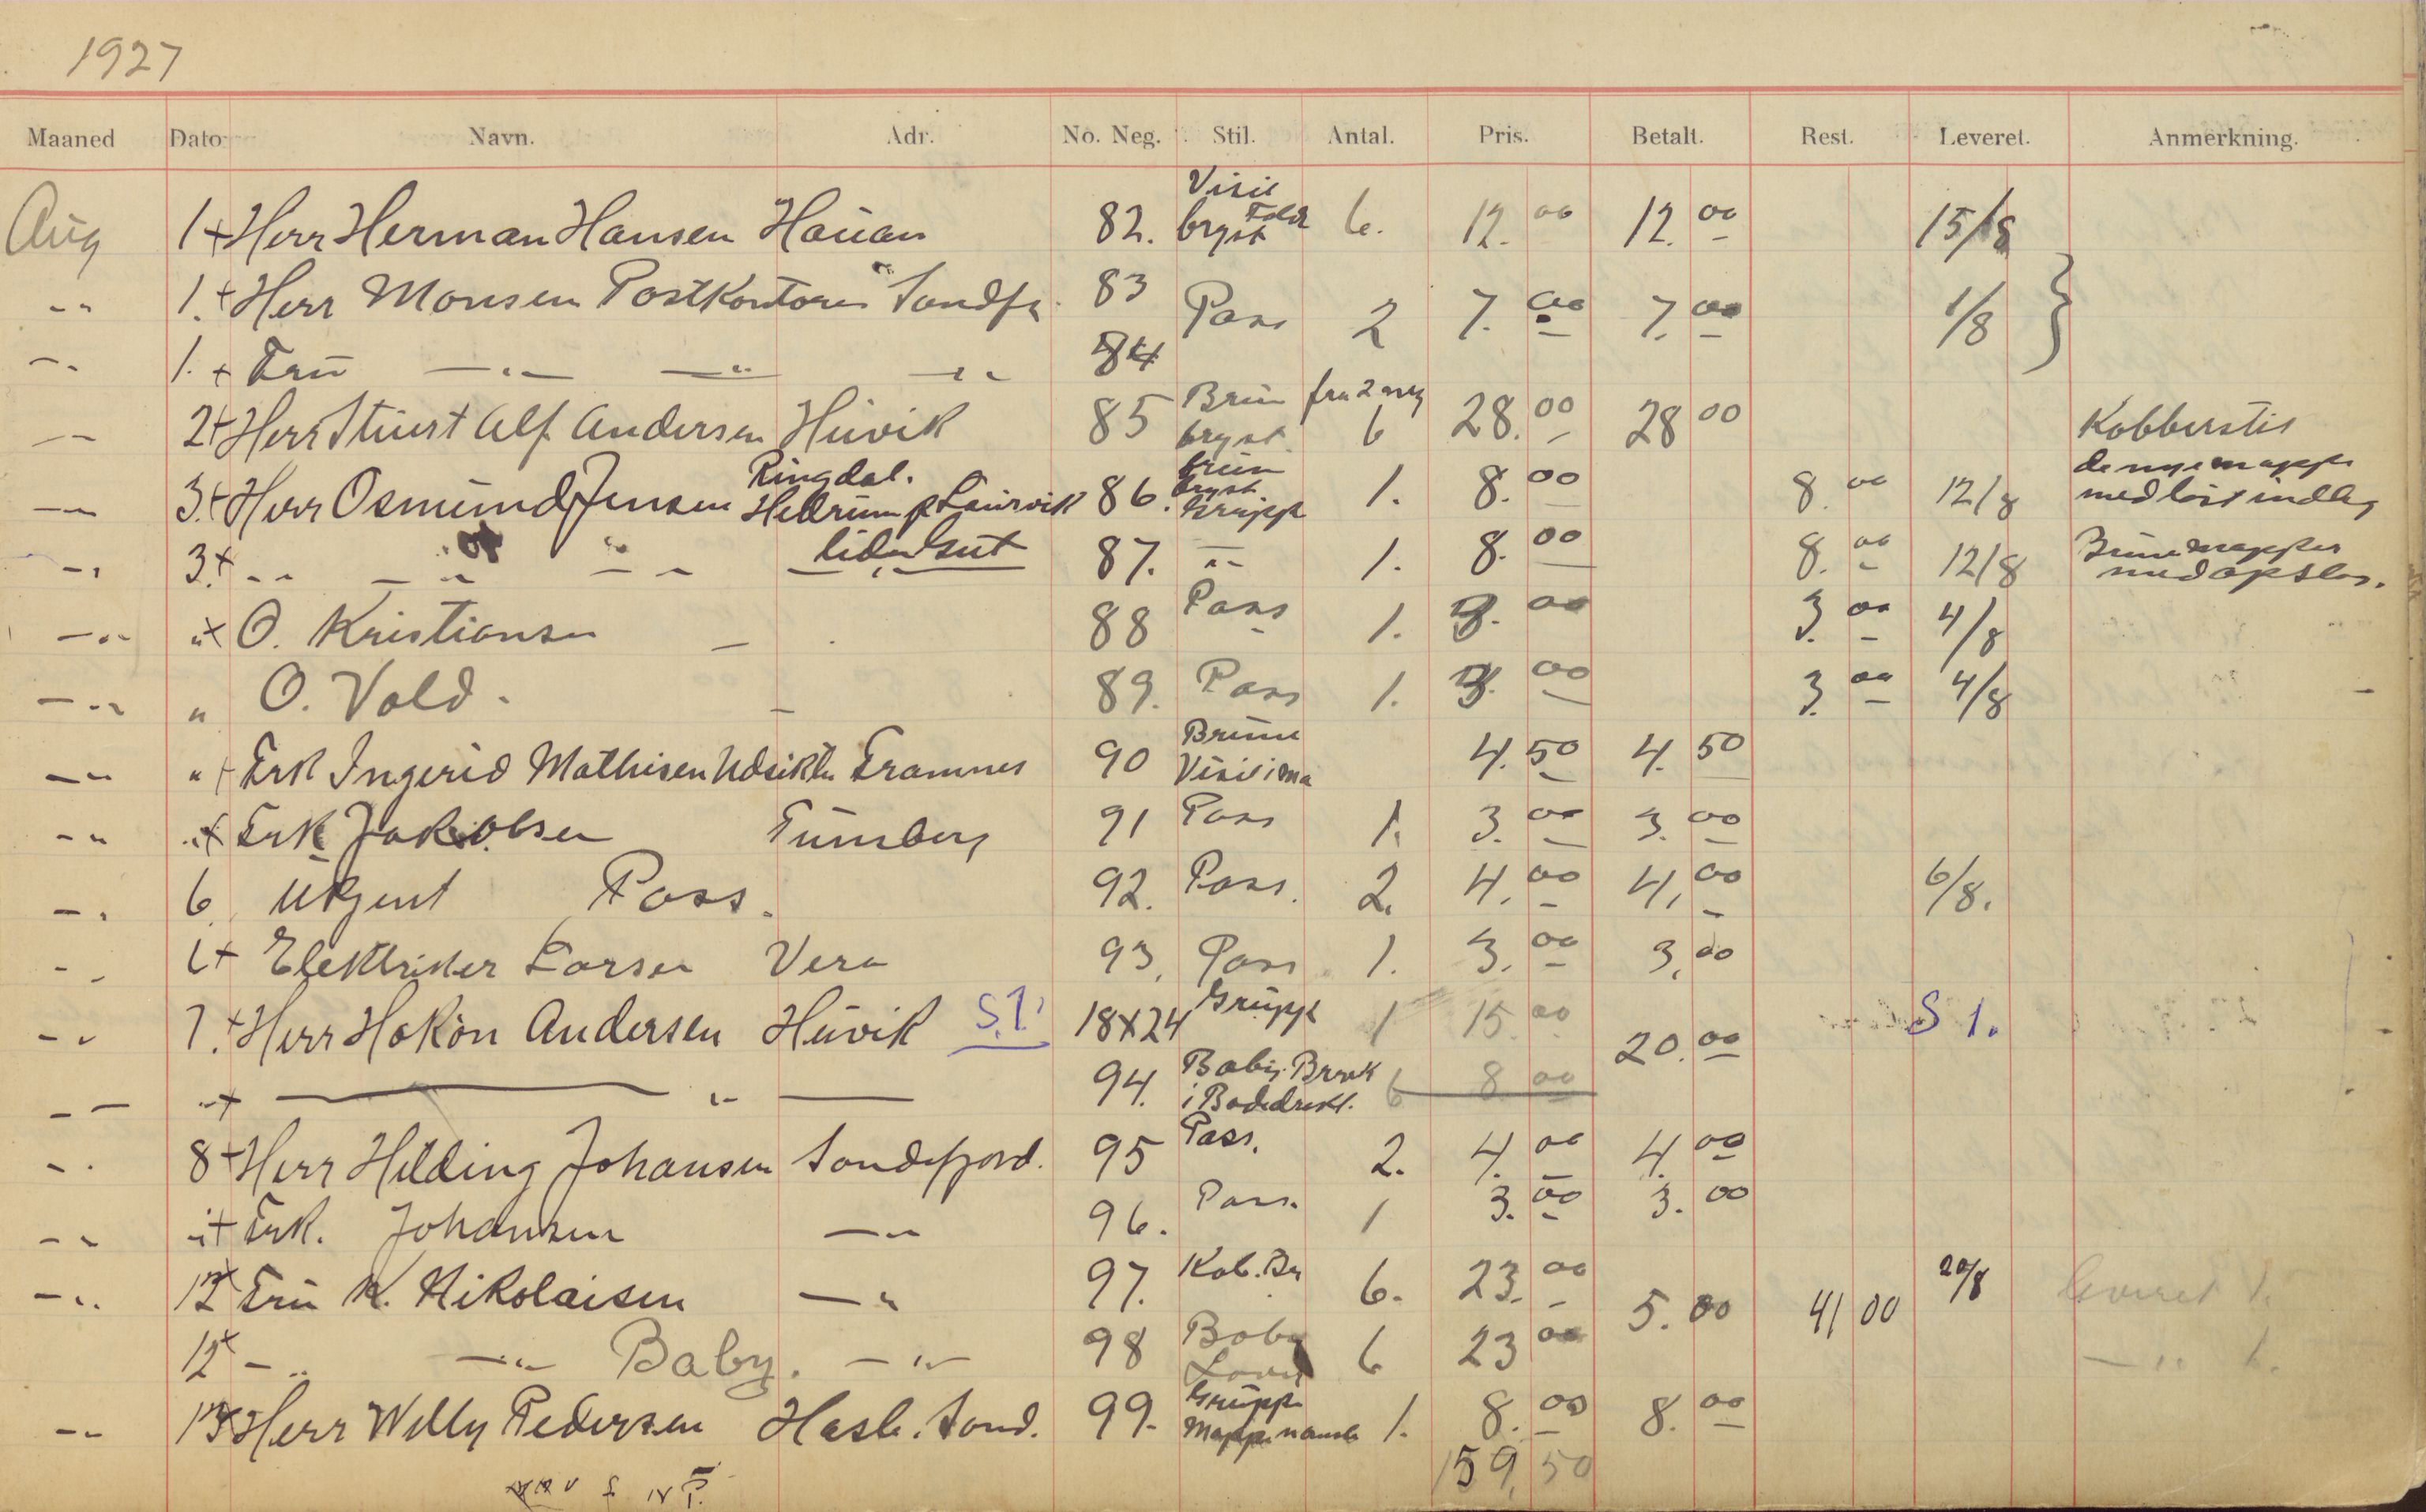 1927
Maaned Dato Navn. Adr. No. Neg. Stil. Antal. Pris. Betalt. Rest. Leveret. Anmerkning.
Aug 1 + Herr Herman Hansen Hauan 82. Visit bryst 6. 12. 00 12. 00 15/8
-"- 1. + Herr Monsen Postkontoret Sandfj. 83 Pass 2 7. 00 7. 00 1/8 }
-"- 1. + Fru -"- -"- -"- 84
-"- 2 + Herr Stuert Alf Andersen Huvik 85 Brun bryst fra 2 neg 6 28. 00 28 00 Kobberstik
-"- 3. + Herr Osmund Jensen Ringdal. Hedrum p Laurvik 86. brun bryst. Gruppe 1. 8. 00 8. 00 12/8 de nye mapper med løst indlæg
-"- 3. + -"- -"- -"- 87. -"- 1. 8. 00 8. 00 12/8 Brune mapper med opslag.
-"- " + O. Kristiansen - 88 Pass 1. 3. 00 3. 00 4/8
-"- " O. Vold. - 89. Pass 1. 3. 00 3. 00 4/8
-"- " + Frk Ingerid Mathisen Udsikten Framnes 90 Brune Visit i ma 4. 50 4. 50
-"- " + Frk Jakobsen Tunsberg 91 Pass 1. 3. 00 3. 00
-"- 6 Ukjent Pass. 92. Pass. 2. 4. 00 4. 00 6/8.
-"- 6 + Elektriker Larsen Vera 93. Pass 1. 3. 00 3. 00
-"- 7. + Herr Hakon Andersen Huvik S.1. 18x24 Gruppe 1 15. 00 20. 00 S 1.
-"- " + -"- 94. Baby. i Badedrakt. 6 8 00
-"- 8 + Herr Hilding Johansen Sandefjord. 95 Pass. 2. 4. 00 4. 00
-"- " + Frk. Johansen -"- 96. Pass. 1 3. 00 3. 00
-"- 12 + Fru K. Nikolaisen -"- 97. Kob. Br 6. 23. 00 5. 00 41 00 20/8 Leveret 1.
12 + -"- -"- Baby. -"- 98 Baby 6 23 00 -"- 6.
-"- 13 + Herr Willy Pedersen Hasle. Sand. 99. Gruppe 1. 8. 00 8. 00
159, 50